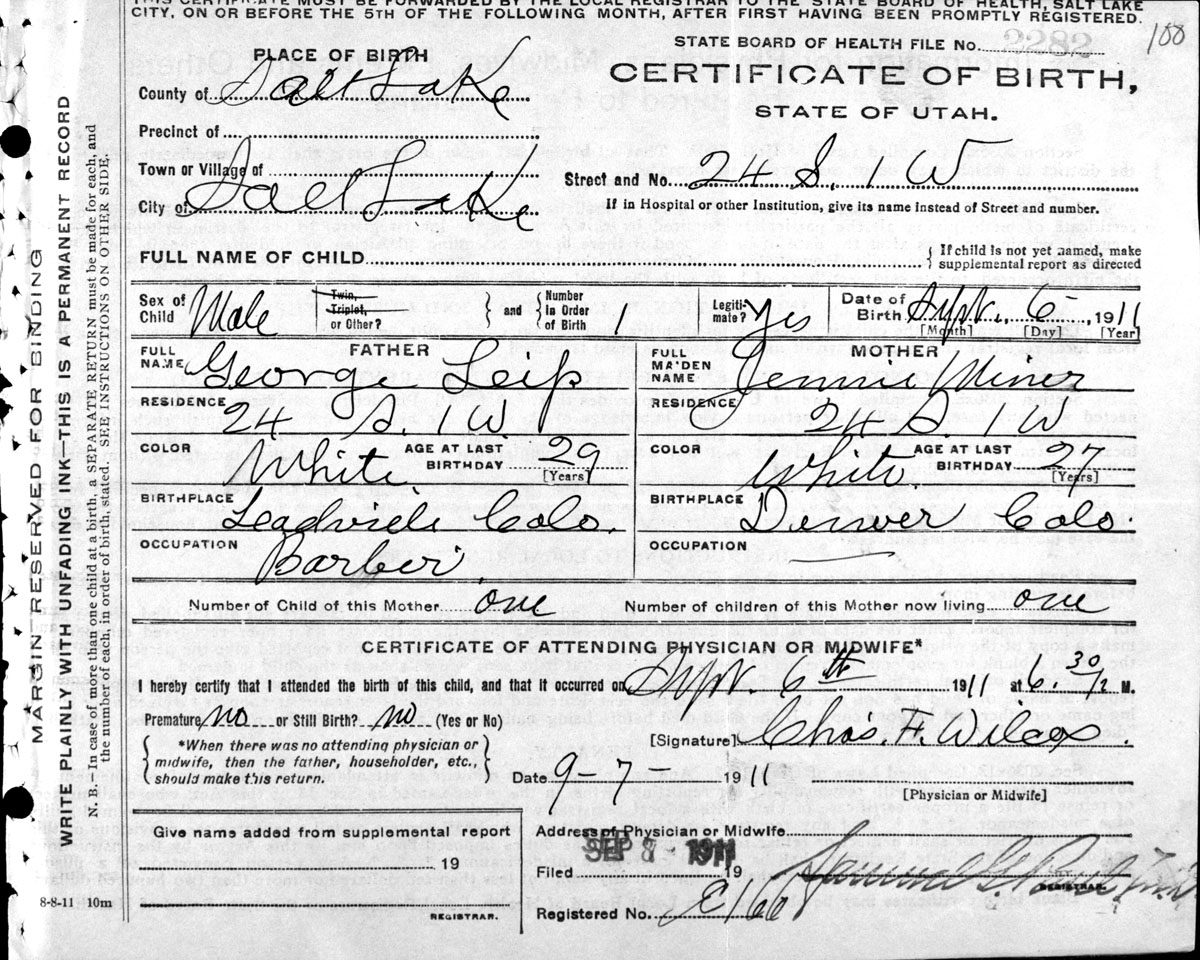 THIS CERTIFICATE MUST BE FORWARDED BY THE LOCAL REGISTRAR TO THE STATE BOARD OF HEALTH, SALT LAKE
CITY, ON OR BEFORE THE 5TH OF THE FOLLOWING MONTH, AFTER FIRST HAVING BEEN PROMPTLY REGISTERED.
100
PLACE OF BIRTH
STATE BOARD OF HEALTH FILE NO.
CERTIFICATE OF BIRTH,
STATE OF UTAH.
County of Salt Lake
Precinct of
Town or Village of
City of Salt Lake
Street and No. 24 S. 1 W
If in Hospital or other Institution, give its name instead of Street and number.
FULL NAME OF CHILD
{ If child is not yet named, make
supplemental report as directed
Sex of Child Male
Twin, Triplet, or Other? } and { Number in Order of Birth 1
Legitimate? Yes
Date of Birth Sept. 6 1911
[Month] [Day] [Year]
FATHER
FULL NAME George Leip
RESIDENCE 24 S. 1 W
COLOR White AGE AT LAST BIRTHDAY 29 [Years]
BIRTHPLACE Leadville Colo.
OCCUPATION Barber.
MOTHER
FULL MAIDEN NAME Jennie Miner
RESIDENCE 24 S. 1 W
COLOR White. AGE AT LAST BIRTHDAY 27 [Years]
BIRTHPLACE Denver Colo.
OCCUPATION
Number of Child of this Mother one Number of children of this Mother now living one
CERTIFICATE OF ATTENDING PHYSICIAN OR MIDWIFE*
I hereby certify that I attended the birth of this child, and that it occurred on Sept. 6th 1911 at 6 30 M.
Premature no or Still Birth? no. (Yes or No)
{ *When there was no attending physician or
midwife, then the father, householder, etc.,
should make this return. }
[Signature] Chas. F. Wilcox.
Date 9-7- 1911
[Physician or Midwife]
Give name added from supplemental report
19
REGISTRAR.
Address of Physician or Midwife
SEP 8 - 1911
Filed 19
REGISTRAR.
Registered No.
8-8-11 10m
MARGIN RESERVED FOR BINDING
WRITE PLAINLY WITH UNFADING INK-THIS IS A PERMANENT RECORD
N. B. In case of more than one child at a birth, a SEPARATE RETURN must be made for each, and
the number of each, in order of birth, stated. SEE INSTRUCTIONS ON OTHER SIDE.